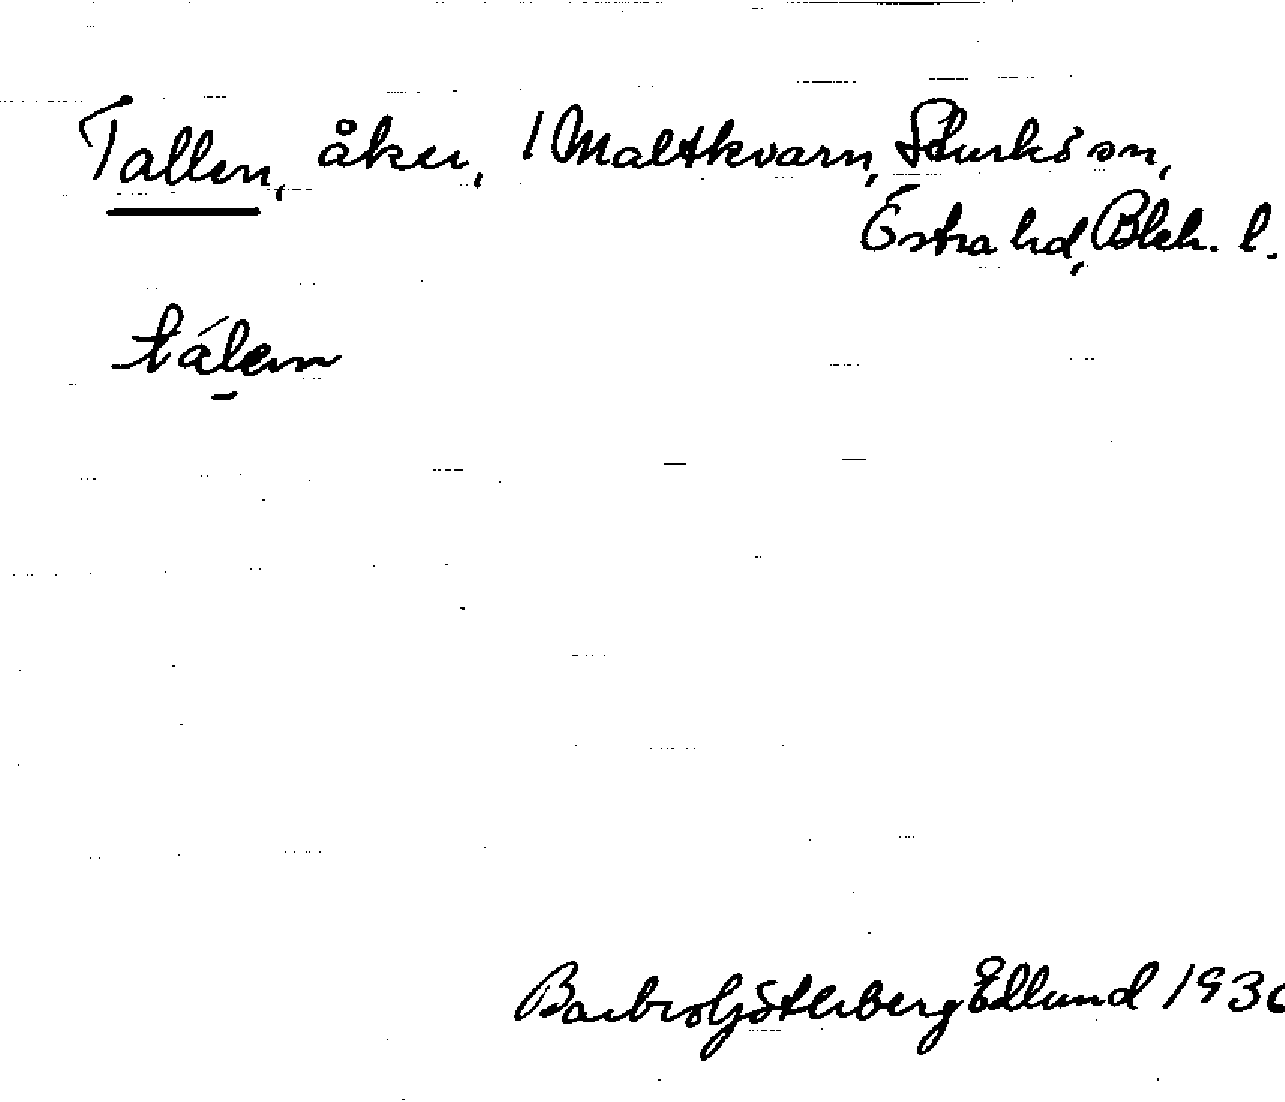 Tallen, åker, 1 Maltkvarn, Sturkö sn,
Östra hd, Blek. l.
tálen
Barbro Götlerberg Edlund 193